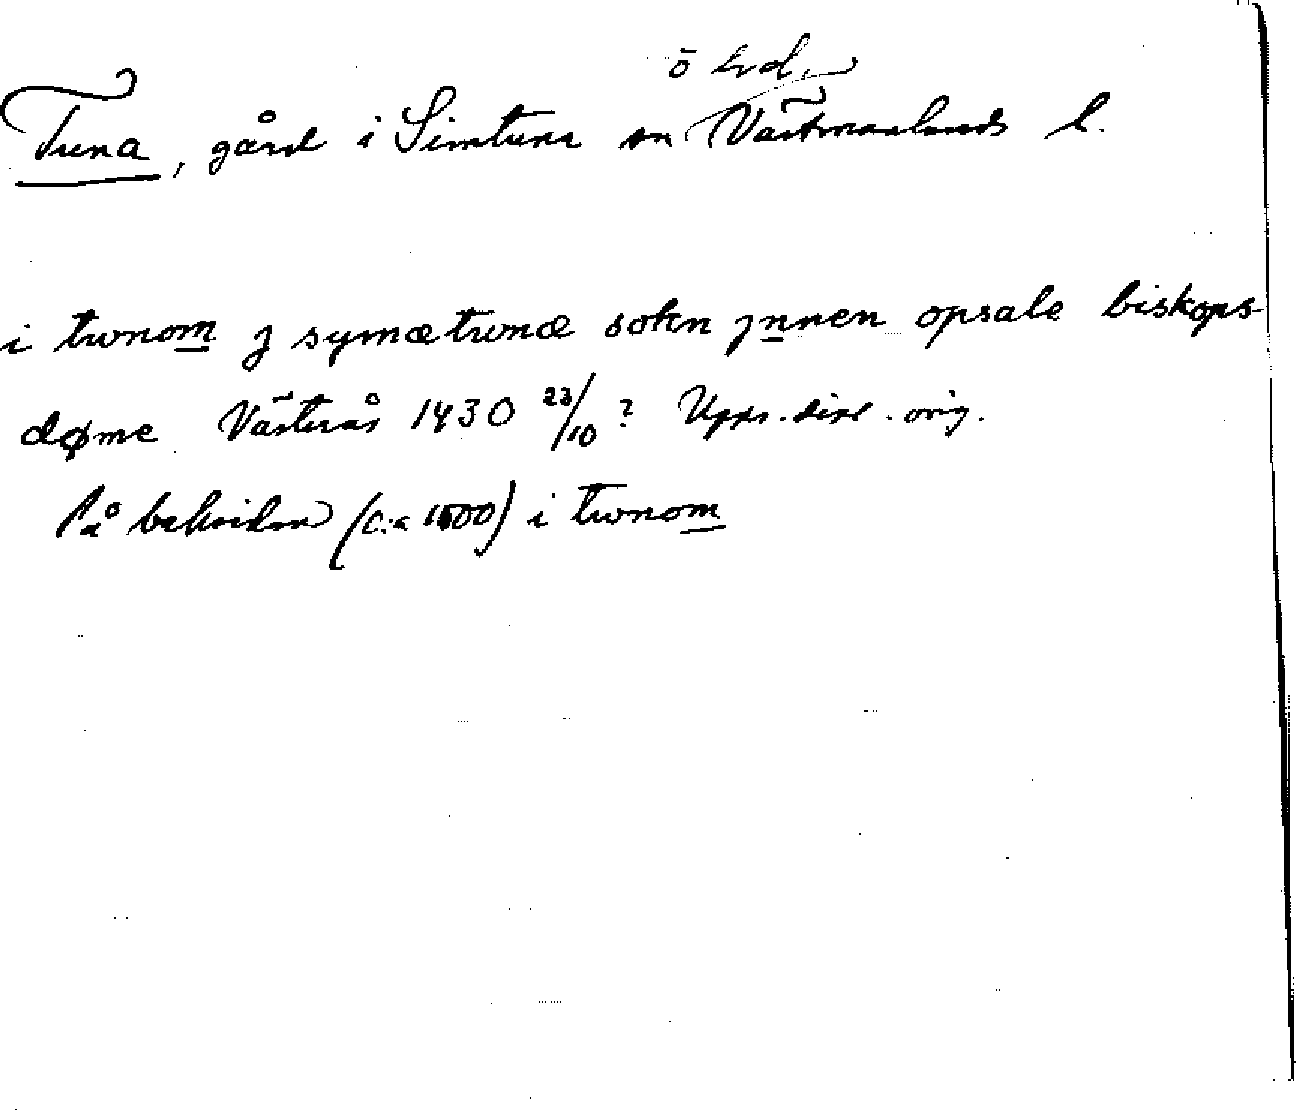 ö hd.
Tuna, gård i Simtuna sn Västmanlands l.
i twnom j symætwnæ sokn jnnen opsale biskops-
døme Västerås 1430 23/10? Upps. dipl. orig.
På baksidan (c:a 1500) i twnom